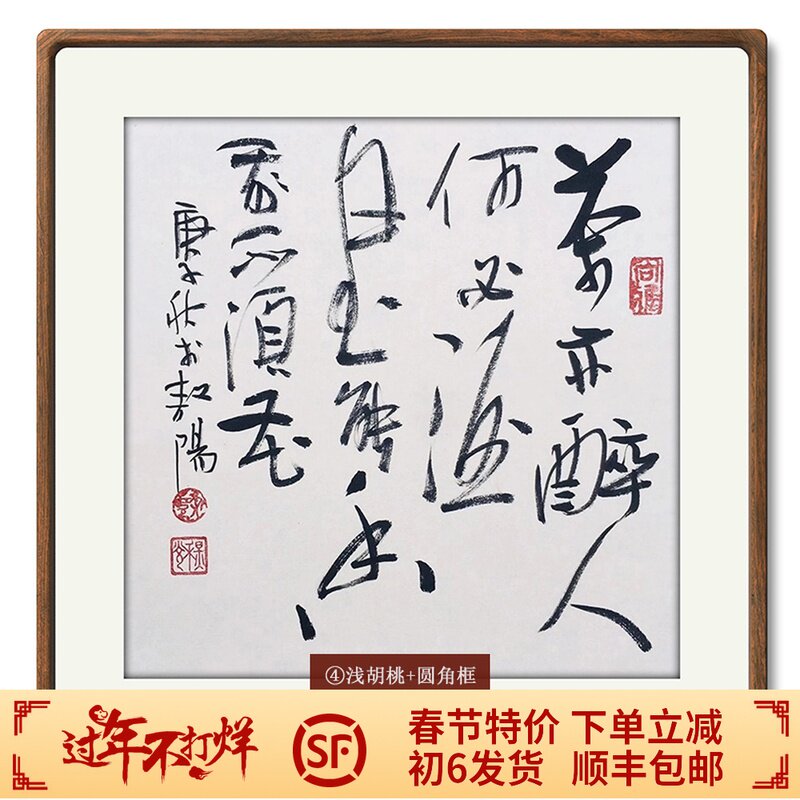 茶亦醉人
何必酒
书能香
我不须花
庚子秋于
陽
④浅胡桃+圆角框
过年不打烊
SF
春节特价 下单立减
初6发货 顺丰包邮